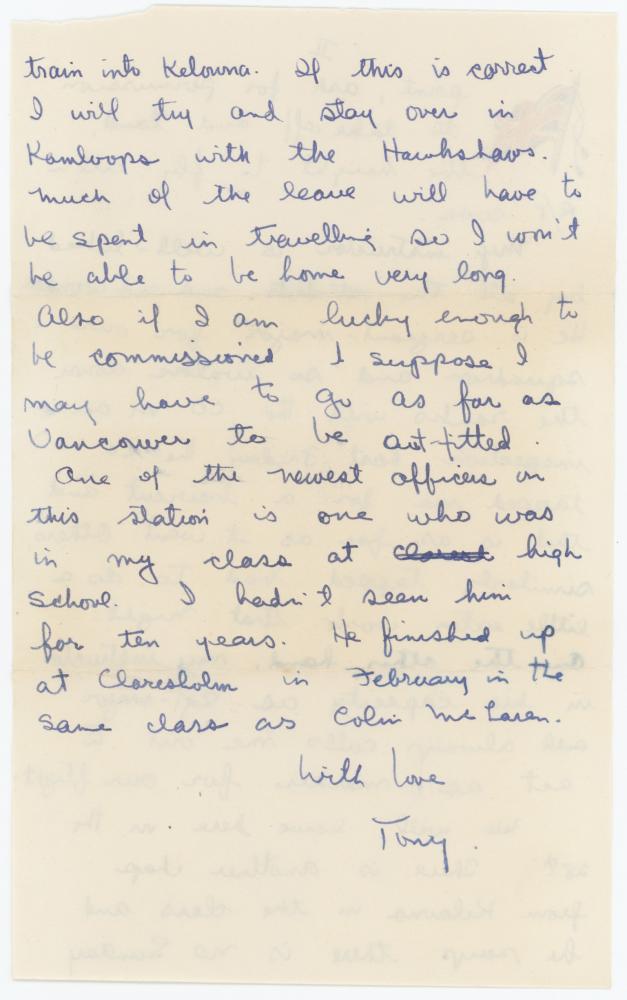 train into Kelowna. If this is correct
I will try and stay over in
Kamloops with the Hawkshaws.
Much of the leave will have to
be spent in travelling so I won't
be able to be home very long.
Also if I am lucky enough to
be commissioned I suppose I
may have to go as far as
Vancouver to be out-fitted.
One of the newest officers on
this station is one who was
in my class at high
school. I hadn't seen him
for ten years. He finished up
at Claresholm in February in the
same class as Colin McLaren.
With love
Tony.